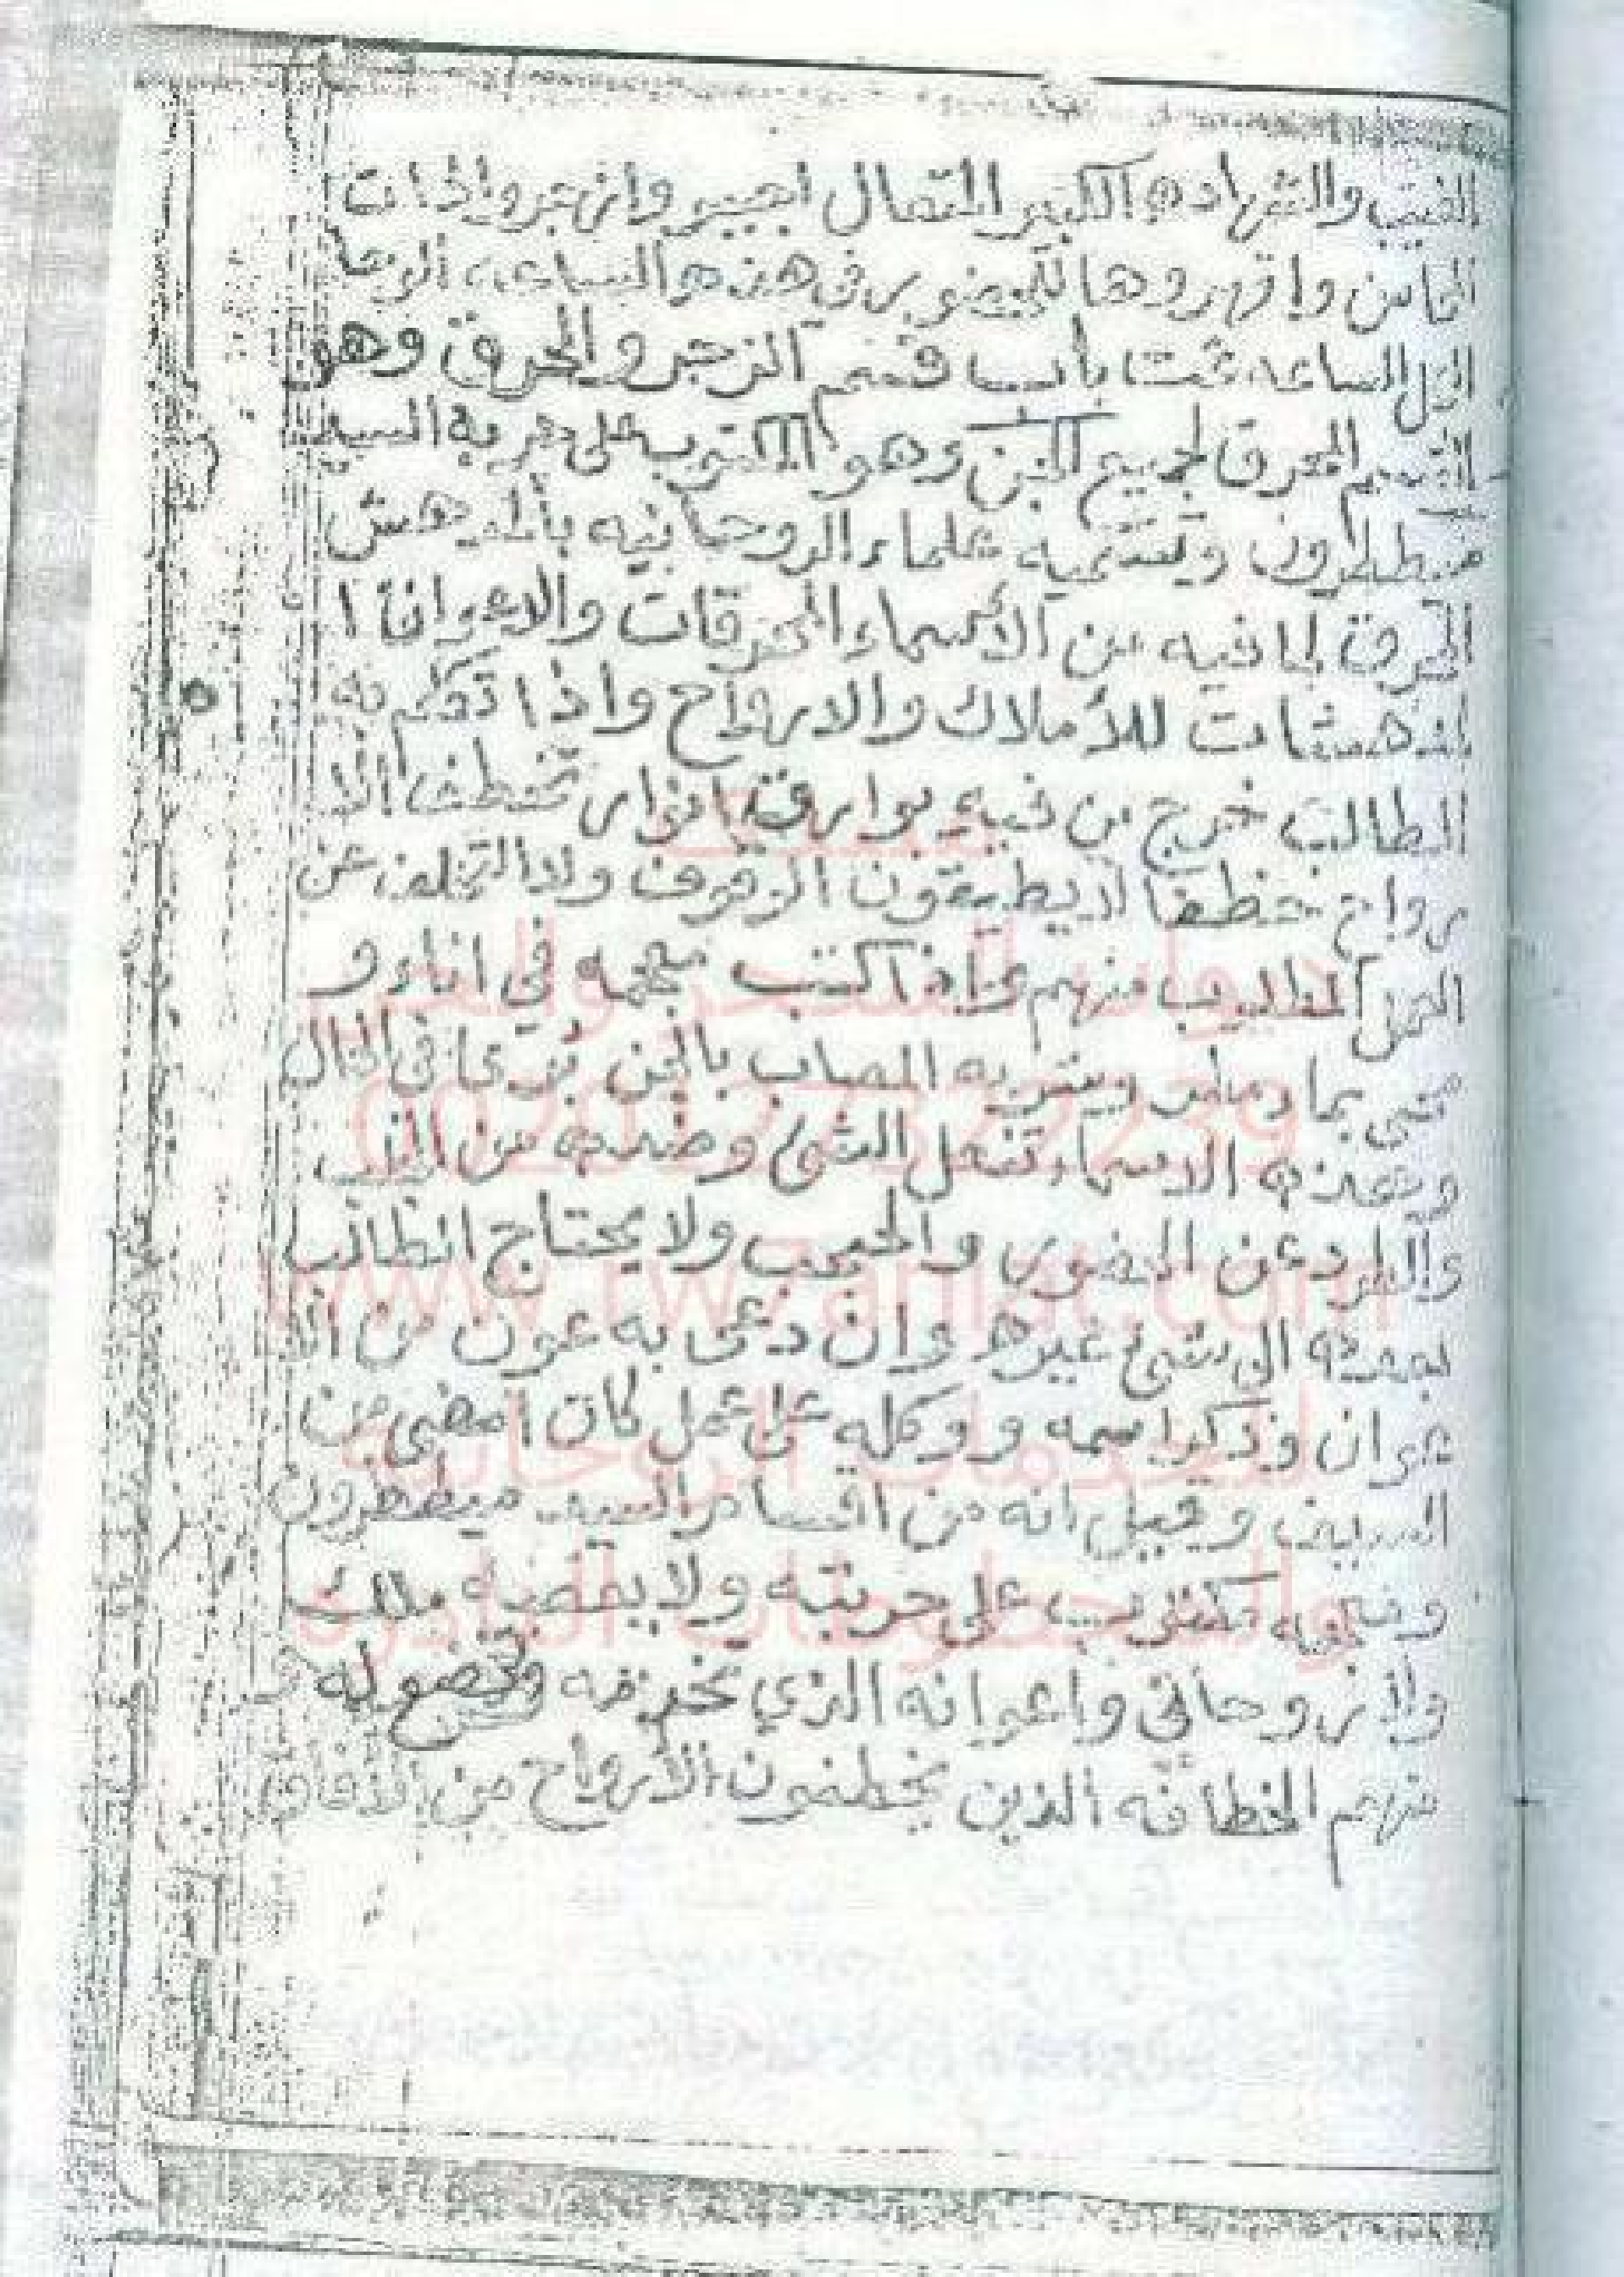 الغيب والشهاده الكبير المتعال اجيبو وانهتروا ذات
وا قهروها للحضور فى هذه الساعه الوحا
الساعه تمت باب قسم الزجر والحرق وهو
القسم المحرق لجميع الجن وهو المكتوب على حربة السيد
ميططرون وتسميه علماء الروحانيه بالمدهش
المحرق لما فيه من الأسماء المحرقات والاعوانا ا
لمدهشات للأملاك والارواح واذا تكلم به
الطالب خرج من فيه بوارق انوار تخطف الا
رواح خطفا لا يطيقون الوقوف ولا التخلف عن
العمل المطلوب منهم واذا كتب جميعه في اناء و
محى بماء مطر ويشربه المصاب بالجن برئ فى الحال
وبهذه الاسماء تفعل الشئ وضده من الجلب
والطرد عن الحضور والحجب ولا يحتاج الطالب
بعده الى شئ غيره وان دعى به عون من الا
عوان وذكر اسمه ووكله على عمل كان امضى من
السيف وقيل انه من اقسام السيد ميططرون
وجميعه مكتوب على حربته ولا يعصيه ملك
ولا روحانى واعوانه الذي تخدمه وتخضع له
منهم الخطافه الذين يخطفون الأرواح من
0020123732239
www.rwanlar.com
للخدمات الروحانية
والمخطوطات النادرة